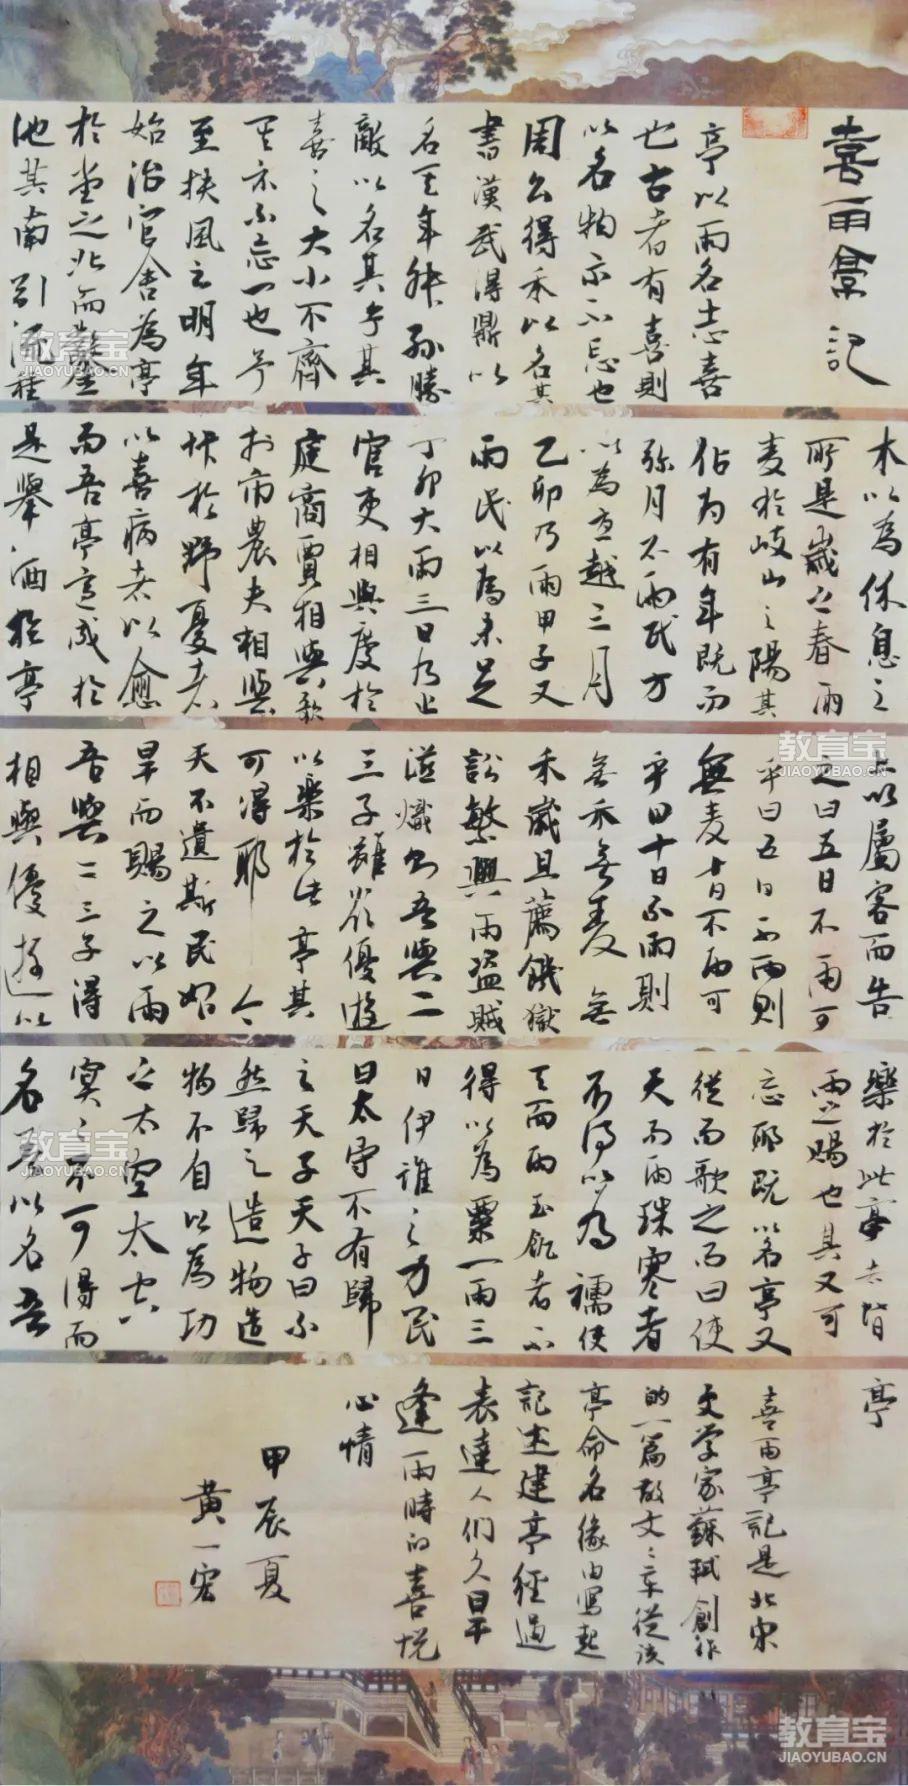 喜雨亭記
亭以雨名志喜
也古者有喜則
以名物示不忘也
周公得禾以名其
書漢武得鼎以
名其年叔孫勝
敵以名其子其
喜之大小不齊
其示不忘一也予
至扶風之明年
始治官舍為亭
於堂之北而鑿
池其南引流種
木以為休息之
所是歲之春雨
麥於岐山之陽其
佔为有年既而
弥月不雨民方
以為憂越三月
乙卯乃雨甲子又
雨民以為未足
丁卯大雨三日乃止
官吏相與慶於
庭商賈相與歌
於市農夫相與
忭於野憂者
以喜病者以愈
而吾亭適成於
是舉酒於亭
上以屬客而告
之曰五日不雨可
乎曰五日不雨則
無麥十日不雨可
乎曰十日不雨則
無禾無麥無
禾歲且薦饑獄
訟繁興而盜賊
滋熾則吾與二
三子雖欲優遊
以樂於此亭其
可得耶 今
天不遺斯民始
旱而賜之以雨
吾與二三子得
相與優遊以
樂於此亭者皆
雨之賜也其又可
忘耶既以名亭又
從而歌之而曰使
天而雨珠寒者
不得以為襦使
天而雨玉飢者不
得以為粟一雨三
日伊誰之力民
曰太守不有歸
之天子天子曰不
然歸之造物造
物不自以為功
之太空太空
冥冥不可得而
名吾以名吾
亭
喜雨亭記是北宋
文學家蘇軾創作
的一篇散文文章從該
亭命名緣由寫起
記述建亭經過
表達人们久旱
逢雨時的喜悅
心情
甲辰夏
黃一宏
教育宝
JIAOYUBAO.CN
教育宝
JIAOYUBAO.CN
教育宝
JIAOYUBAO.CN
教育宝
JIAOYUBAO.CN